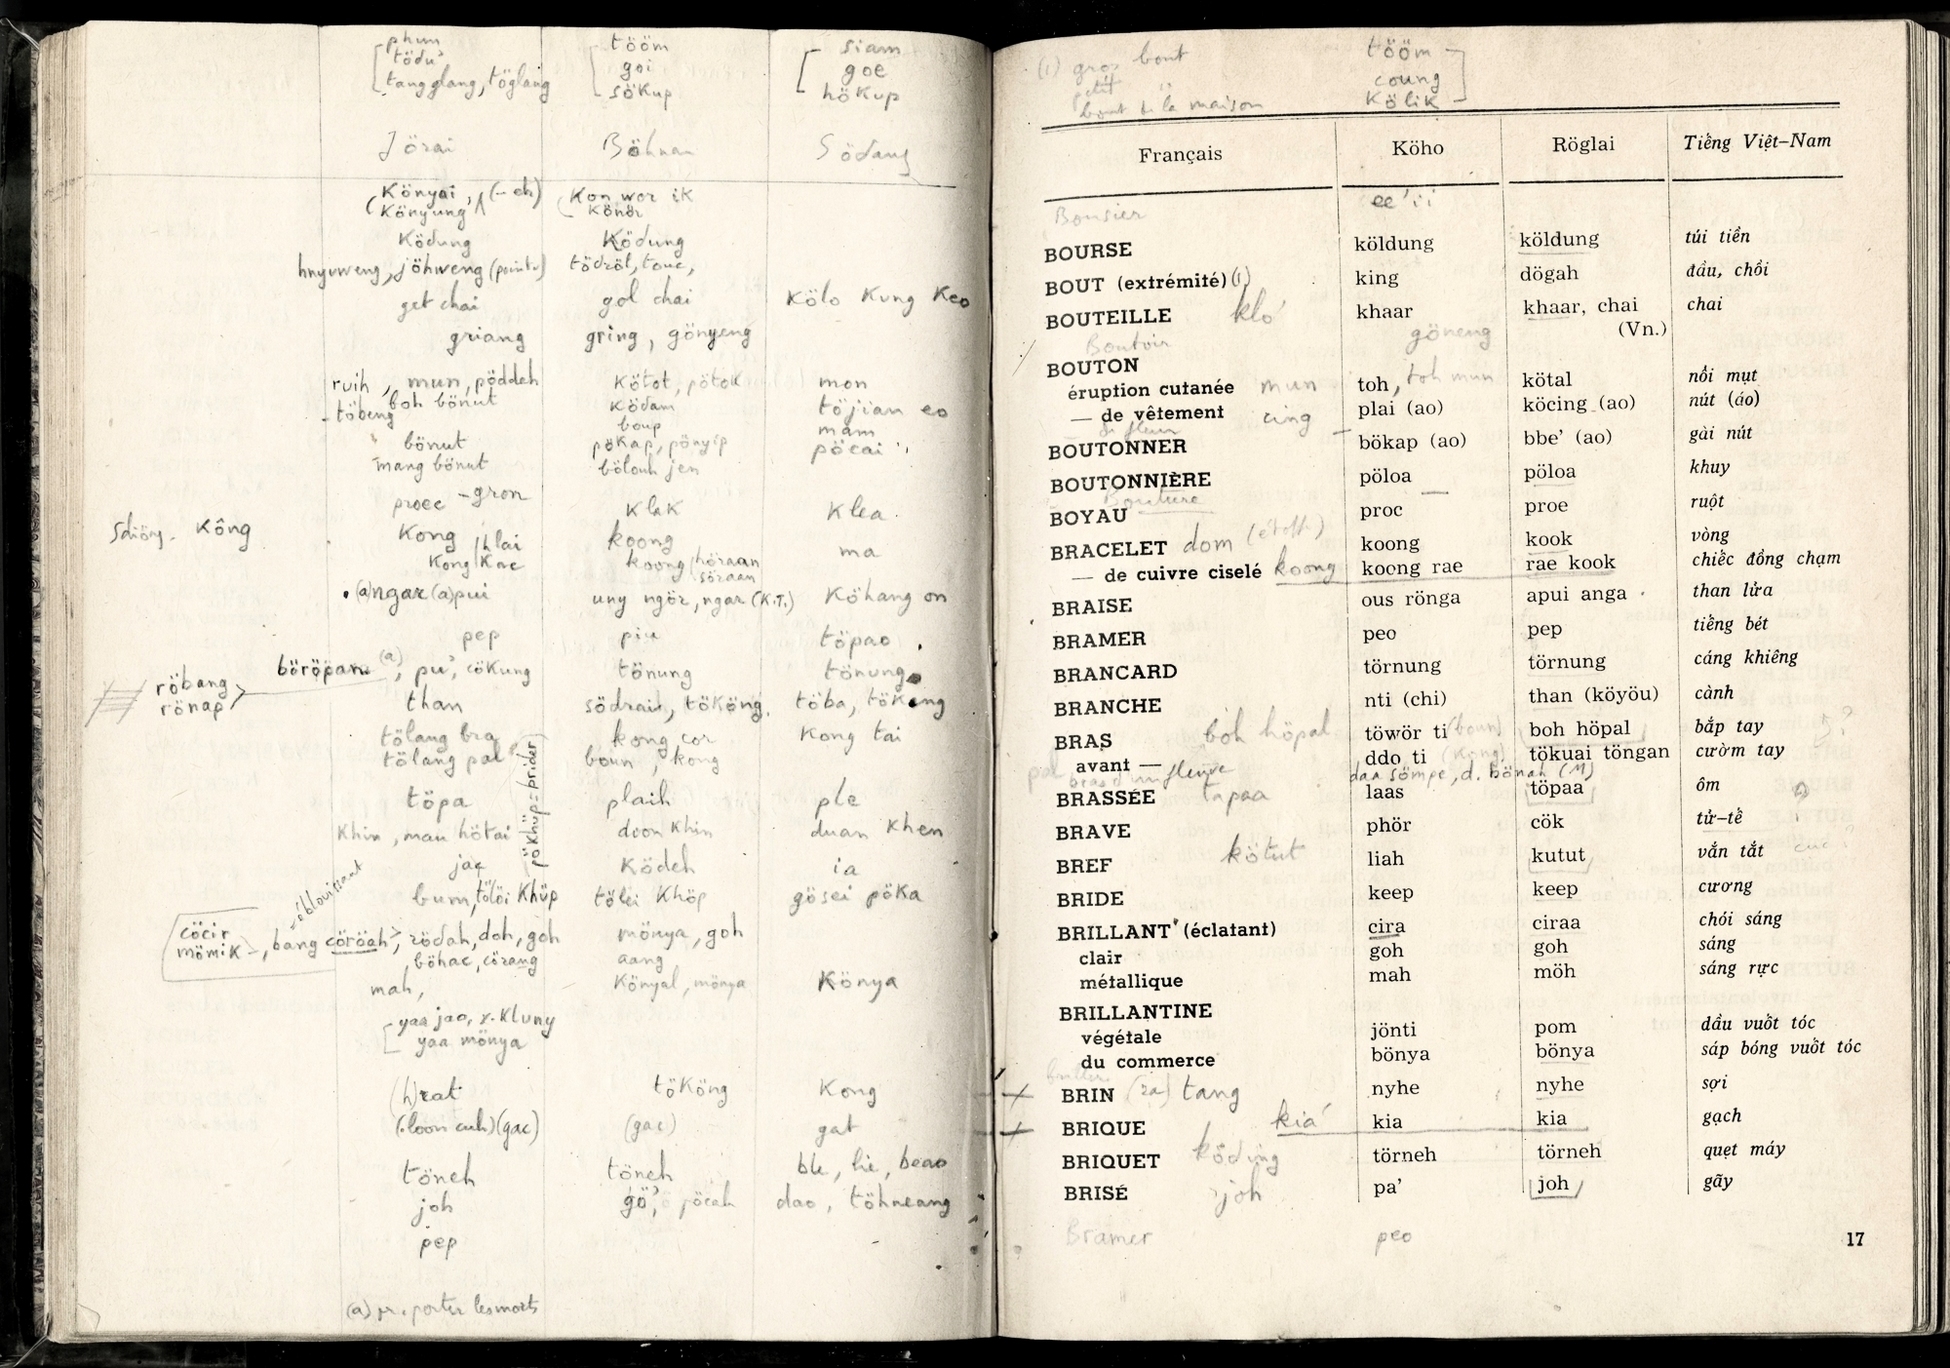 phun tööm siam
tödu' goi goe
tang glang, töglang sökup hökup
Jörai Böhnar Södang
Könyai, (-oh) Kon wor ik
Könyung könör
Ködung Ködung
hnyuweng, jöhweng (pointu) tödröl, touc,
get chai gol chai Kölo Kung Keo
griang gring, gönyeng
ruih, mun, pöddeh kötot, pötok mon
-töbeng boh bönut ködam töjian eo
boup mam
bönut pökap, pönyip pöcai
mang bönut bölouh jen
proec -gron klak klea
Sdiöng. Kông Kong koong ma
Kong hlai koong höraan
Kac söraan
(a)ngar (a)pui uny ngör, ngar (K.T.) Köhang on
pep piu töpao
böröpan (a), pu', cökung tönung tönung
röbang
rönap
than södraih, tököng töba, tököng
tölang bra kong cor Kong tai
tölang pal boun, kong
pökhüp = brider
töpa plaih ple
Khin, mau hötai doon khin duan khen
jaq ködeh ia
éblouissant
bum, tölöi Khüp tölei Khöp gösei pöka
cöcir
mömik, bang cöröah, rödah, doh, goh mönya, goh
böhac, cörang aang
mah, Könyal, mönya Könya
yaa jao, y. kluny
yaa mönya
(h)rat tököng Kong
(loon cuh) (gac) (gac) gat
töneh töneh ble, lie, beao
joh gö', pöcah dao, töhneang
pep
(a) pr. porter les morts
(1) gros bout tööm
petit " coung
bout de la maison Kölik
Français Köho Röglai Tiếng Việt-Nam
Bousier ee' ii
BOURSE köldung köldung túi tiền
BOUT (extrémité) (1) king dögah đầu, chồi
BOUTEILLE klo' khaar khaar, chai chai
(Vn.)
Boutoir göneng
BOUTON
éruption cutanée mun toh, toh mun kötal nồi mụt
— de vêtement cing plai (ao) köcing (ao) nút (áo)
— de fleur
BOUTONNER bökap (ao) bbe' (ao) gài nút
BOUTONNIÈRE pöloa pöloa khuy
Bouture
BOYAU proc proe ruột
BRACELET dom (étoff.) koong kook vòng
— de cuivre ciselé koong koong rae rae kook chiếc đồng chạm
BRAISE ous rönga apui anga than lửa
BRAMER peo pep tiếng bét
BRANCARD törnung törnung cáng khiêng
BRANCHE nti (chi) than (köyöu) cành
BRAS boh höpal töwör ti (boun) boh höpal bắp tay
avant — ddo ti (kong) tökuai töngan cườm tay
pal bras d'un fleuve daa sömpe, d. bönah (M)
BRASSÉE tapaa laas töpaa ôm
BRAVE phör cök tử-tế
BREF kötut liah kutut vắn tắt
BRIDE keep keep cương
BRILLANT (éclatant) cira ciraa chói sáng
clair goh goh sáng
métallique mah möh sáng rực
BRILLANTINE
végétale jönti pom dầu vuốt tóc
du commerce bönya bönya sáp bóng vuốt tóc
BRIN (ra) tang nyhe nyhe sợi
BRIQUE kia' kia kia gạch
BRIQUET köding törneh törneh quẹt máy
BRISÉ joh pa' joh gãy
Bramer peo
17